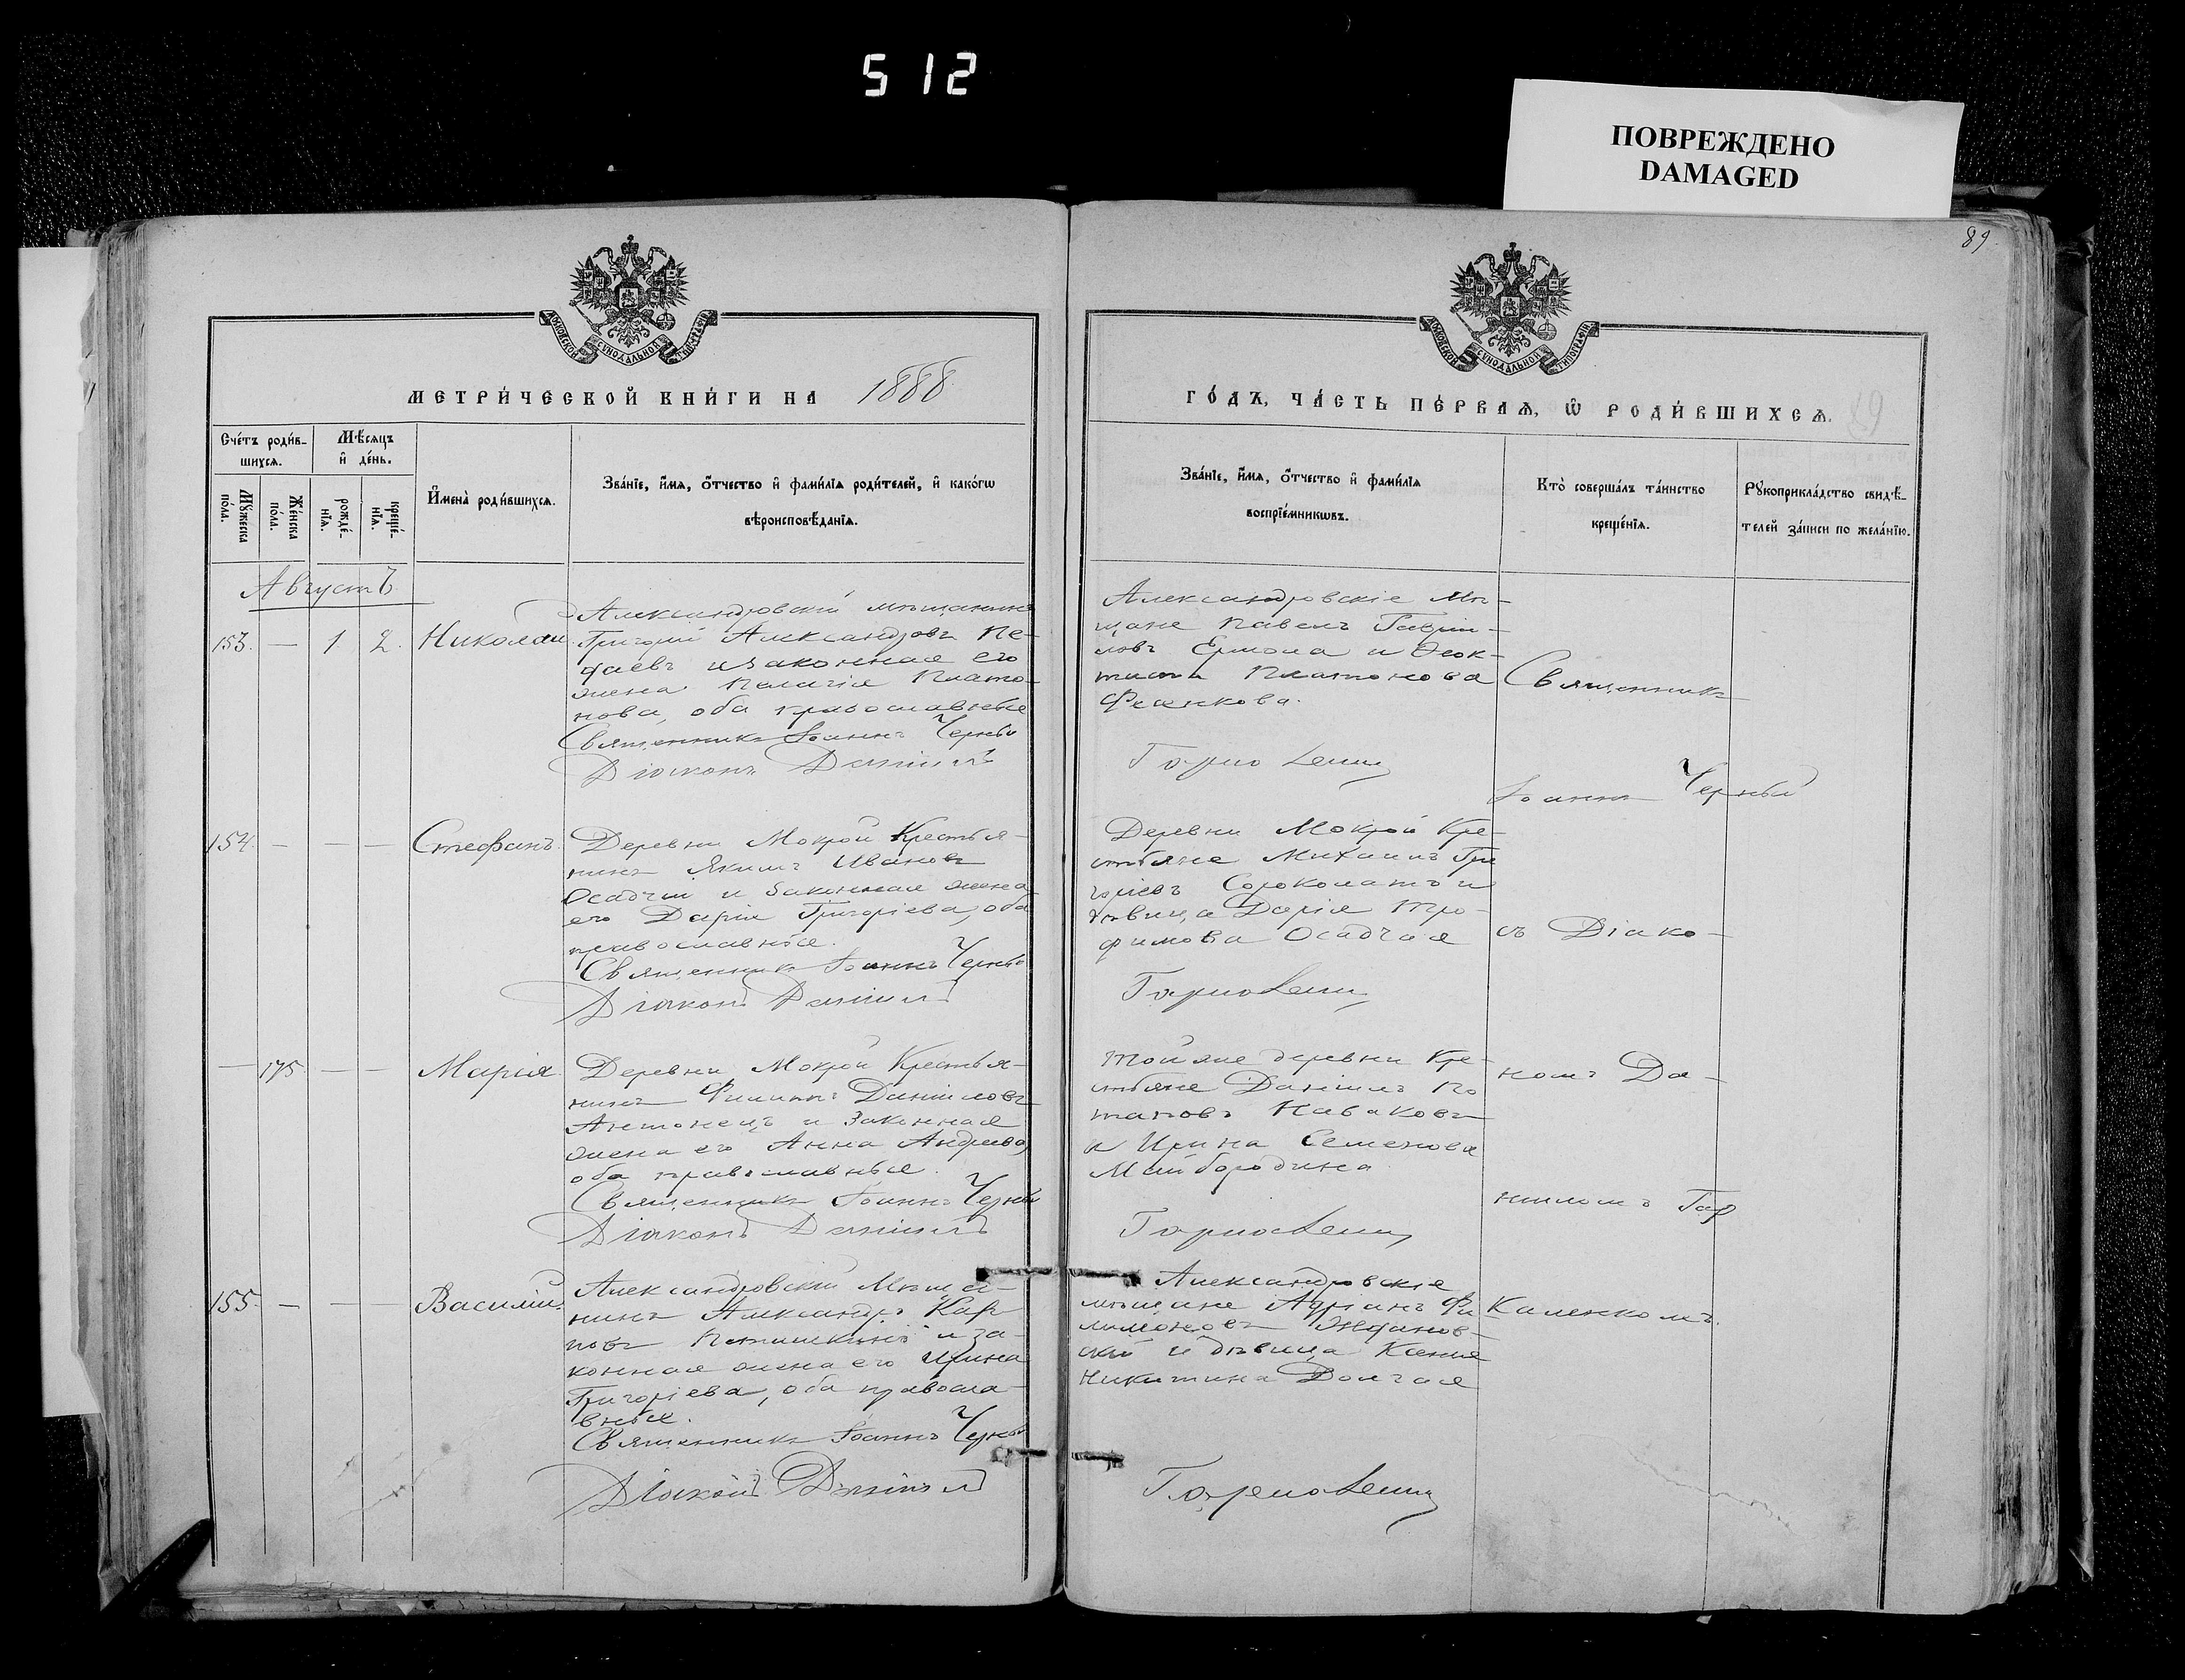 512
ПОВРЕЖДЕНО
DAMAGED
89.
МОСКОВСКОЙ СУНОДАЛЬНОЙ ТИПОГРАФІИ
МОСКОВСКОЙ СУНОДАЛЬНОЙ ТИПОГРАФІИ
МЕТРИ́ЧЕСКОЙ КНИ́ГИ НА 1888
ГО́ДЪ, ЧА́СТЬ ПЕ́РВАѦ, Ѡ РОДИ́ВШИХСѦ. 89
Сче́тъ роди́в-
шихсѧ.
Мѣ́сяцъ
и҆ де́нь.
Мꙋ́жеска
по́ла.
Же́нска
по́ла.
рожде́-
нїѧ.
креще́-
нїѧ.
И҆мена̀ роди́вшихсѧ.
Зва́нїе, и҆́мѧ, о҆́тчество и҆ фами́лїѧ роди́телей, и҆ како́гѡ
вѣроисповѣ́данїѧ.
Зва́нїе, и҆́мѧ, о҆́тчество и҆ фами́лїѧ
воспрїе́мникѡвъ.
Кто̀ соверша́лъ та́инство
креще́нїѧ.
Рꙋкоприкла́дство свидѣ́-
телей за́писи по жела́нїю.
Августъ
153. — 1. 2. Николай.
Александровскій мѣщанинъ
Григорій Александровъ Не-
даевъ и законная его
жена Пелагія Плато-
нова, оба православные
Священникъ Іоаннъ Черный
Діаконъ Даніилъ
Александровскіе Мѣ-
щане Павелъ Гаврі-
ловъ Ермола и Ѳеок-
тиста Платонова
Феенкова.
Гармолепц
Священникъ
Іоаннъ Черный
154. — — — Стефанъ.
Деревни Мокрой Крестья-
нинъ Якимъ Ивановъ
Осадчій и законная жена
его Дарія Григоріева, оба
православные.
Священникъ Іоаннъ Черный
Діаконъ Даніилъ
Деревни Мокрой Кре-
стьяне Михаилъ Гри
горіевъ Сорокопатъ и
дѣвица Дарія Тро-
фимова Осадчая
съ Діако-
— 175 — — Марія.
Деревни Мокрой Крестья-
нинъ Филиппъ Даніиловъ
Антонецъ и Законная
жена его Анна Андреева,
оба православные.
Священникъ Іоаннъ Черный
Діаконъ Даніилъ
Той же деревни Кре-
стьяне Даніилъ По
таповъ Каваковъ
и Ирина Семенова
Майбородина
номъ Да-
ніиломъ Гар
155. — — — Василій.
Александровскій Мѣща-
нинъ Александръ Кар
повъ и за-
конная жена его Ирина
Григоріева, оба правосла-
вные.
Священникъ Іоаннъ Черный
Діаконъ Даніилъ
Александровскіе
мѣщане Адріанъ Фи
лимоновъ Ждановъ-
скій и дѣвица Ксенія
Никитина Долгая
Каленкомъ.